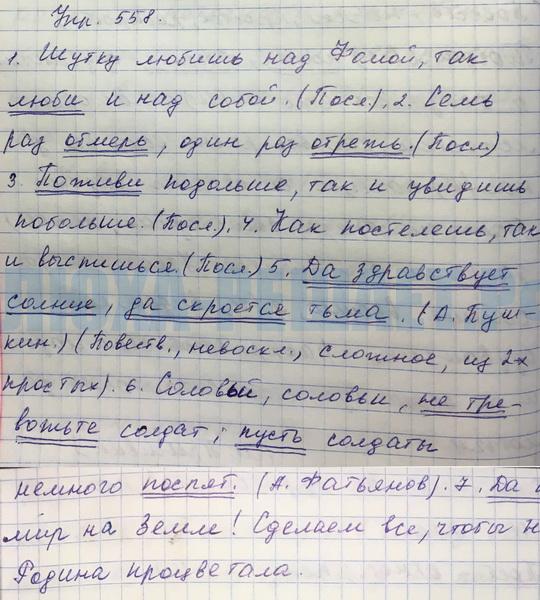 Упр. 558.
1. Шутку любишь над Фомой, так
люби и над собой. (Посл). 2. Семь
раз обмерь, один раз отрежь. (Посл.)
3. Поживи подольше, так и увидишь
побольше. (Посл). 4. Как постелешь, так
и выспишься. (Посл.) 5. Да здравствует
солнце, да скроется тьма. (А. Пуш-
кин.) (Повеств., невоскл., сложное, из 2х
простых). 6. Соловьи, соловьи, не тре-
вожьте солдат; пусть солдаты
немного поспят. (А. Фатьянов). 7. Да
мир на Земле! Сделаем все, чтобы
Родина процветала.